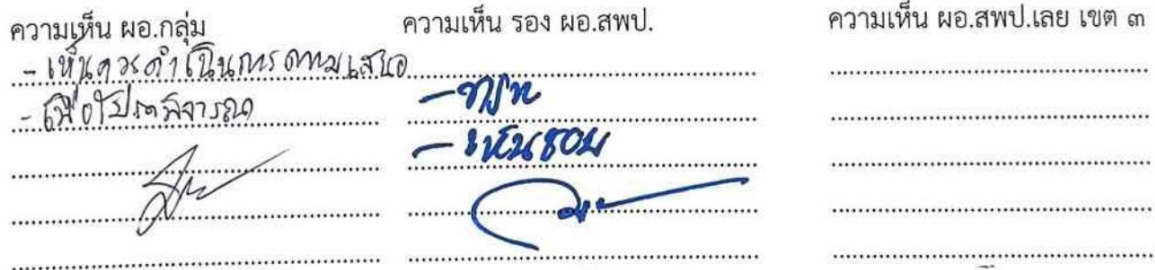 ความเห็น ผอ.กลุ่ม
- เห็นควรดำเนินการตามเสนอ
- เพื่อโปรดพิจารณา
ความเห็น รอง ผอ.สพป.
- ทราบ
- เห็นชอบ
ความเห็น ผอ.สพป.เลย เขต ๓